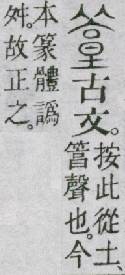 古文。
按此從土、
䈞聲也。今
本篆體譌
舛。故正之。